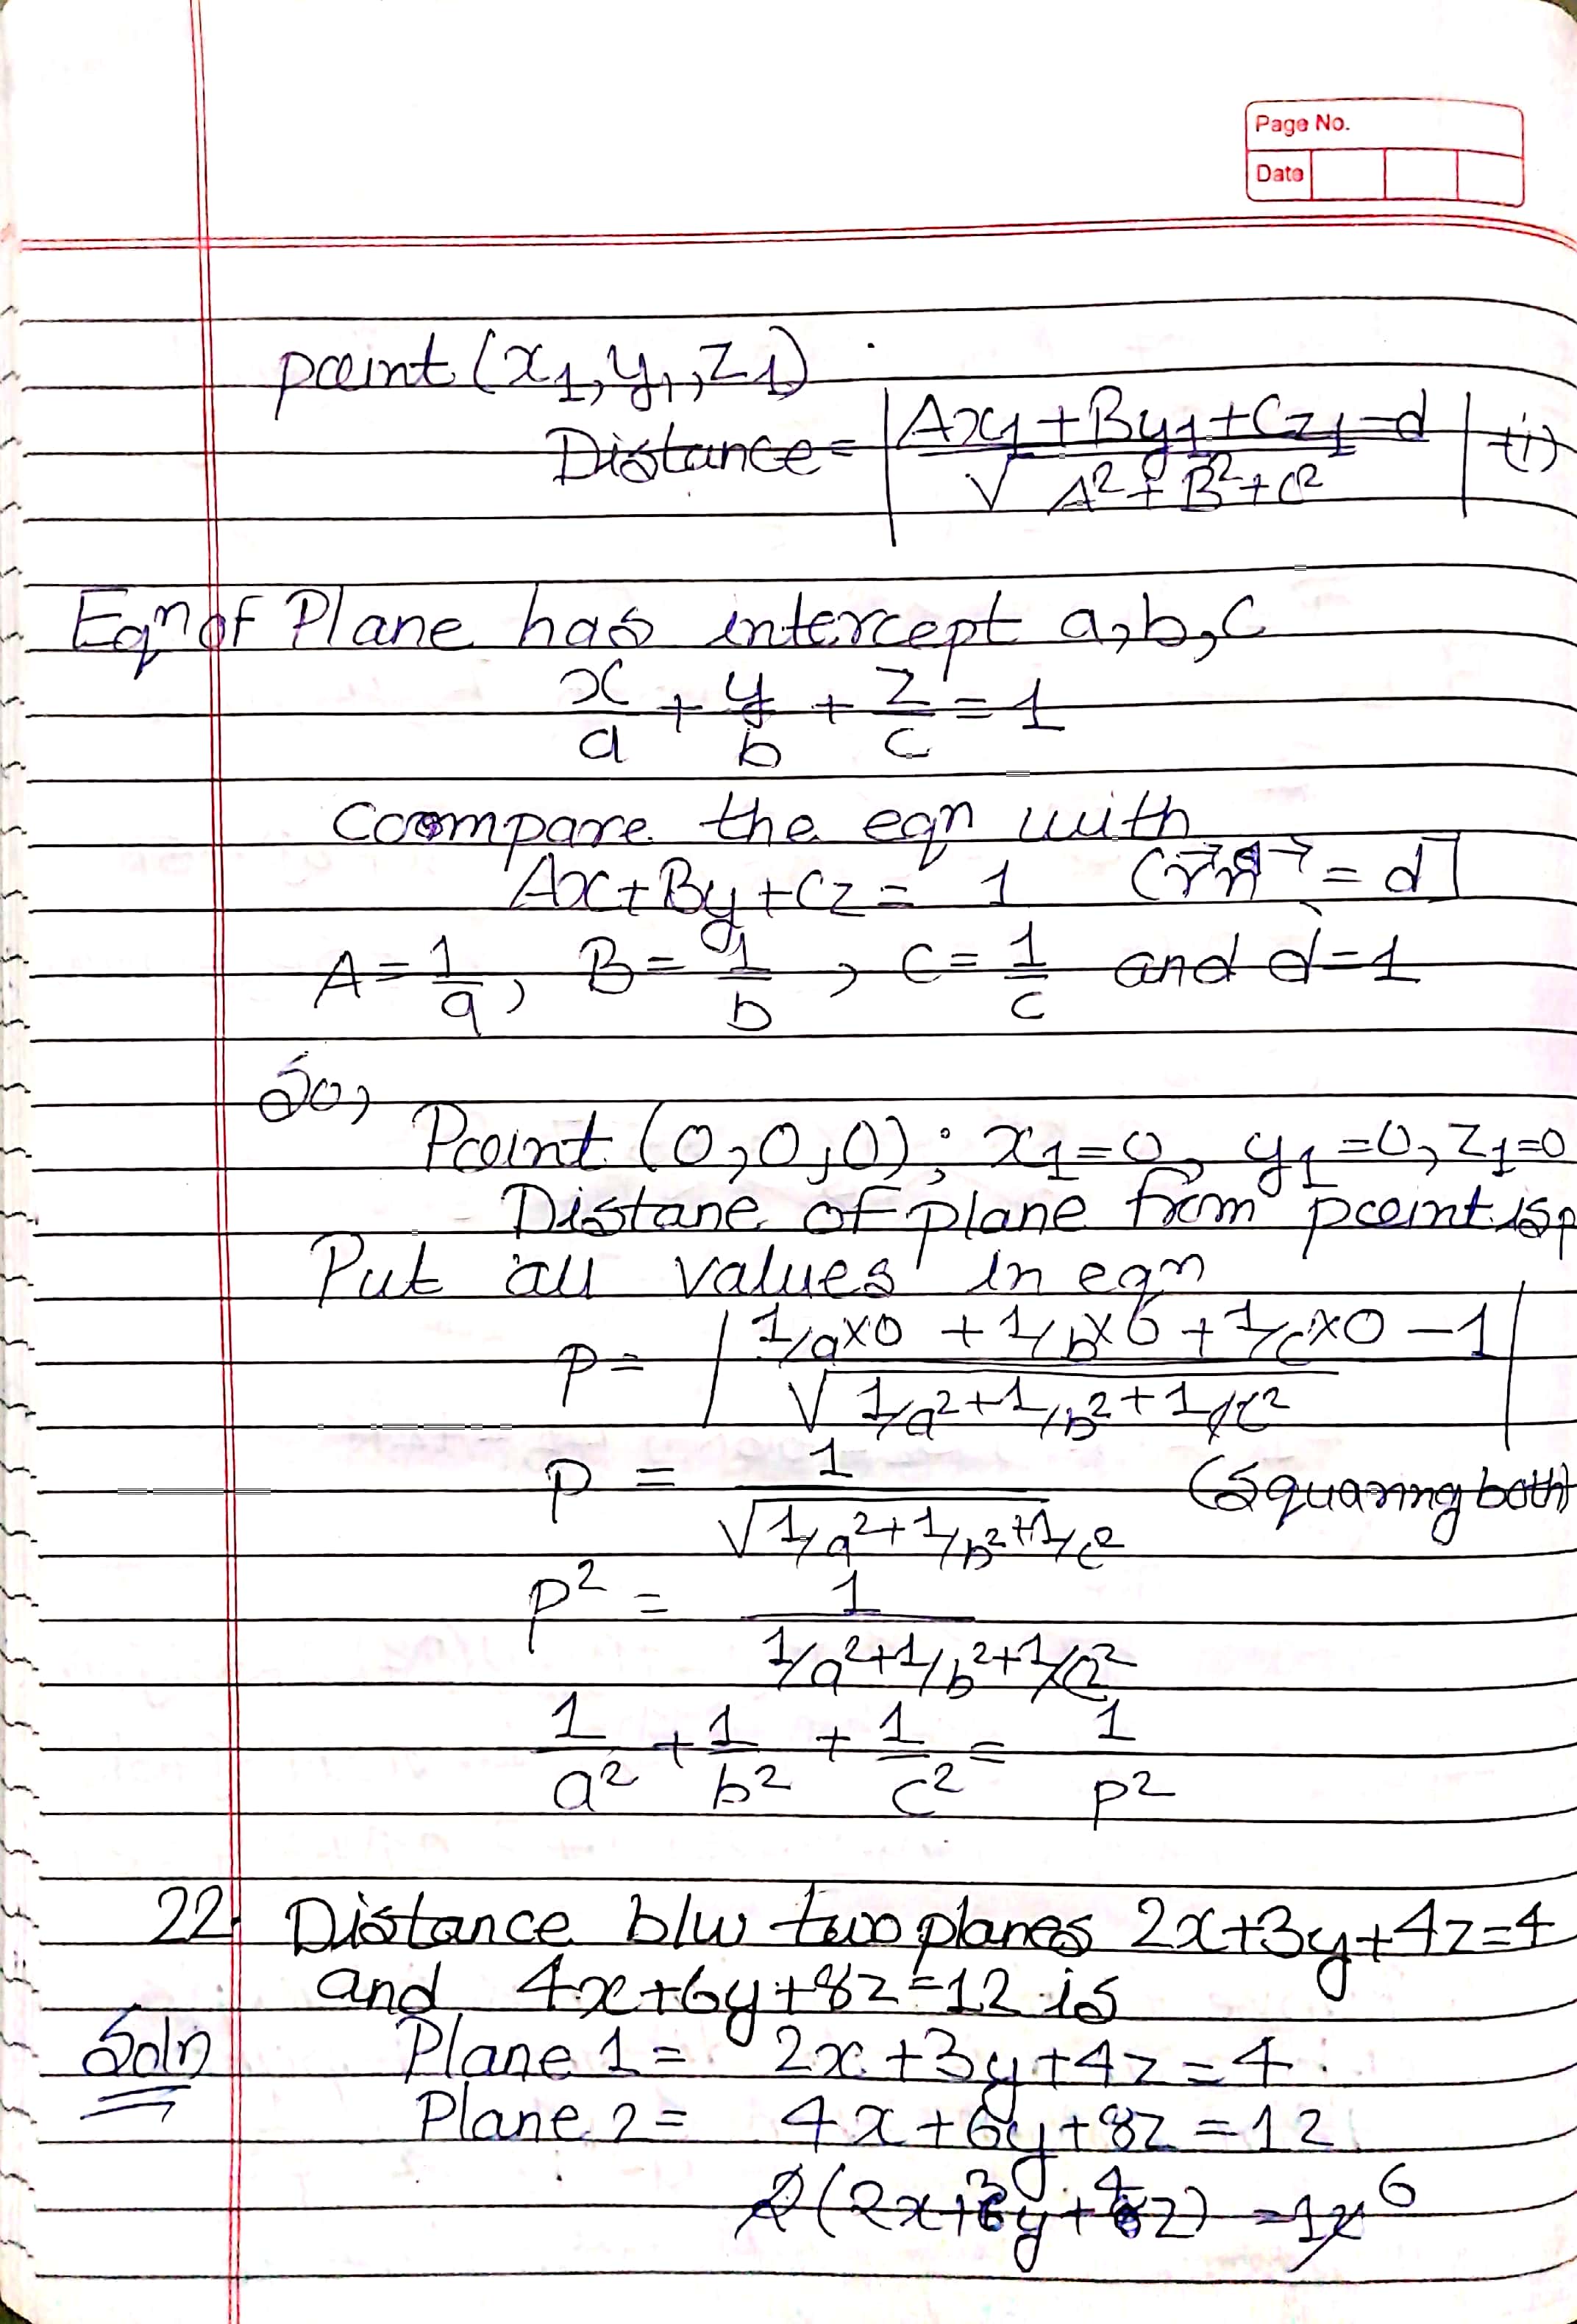 Page No.
Date
point (x1, y1, z1)
Distance = | Ax1 + By1 + Cz1 - d / √ A² + B² + C² | (i)
Eqn of Plane has intercept a, b, c
x/a + y/b + z/c = 1
compare the eqn with
Ax + By + Cz = 1 = d]
A = 1/a, B = 1/b, C = 1/c and d = 1
So,
Point (0, 0, 0); x1 = 0, y1 = 0, z1 = 0
Distane of plane from point is p
Put all values in eqn
p = | 1/a×0 + 1/b×0 + 1/c×0 - 1 / √ 1/a² + 1/b² + 1/c² |
p = 1 / √ 1/a² + 1/b² + 1/c² (Squaring both)
p² = 1 / 1/a² + 1/b² + 1/c²
1/a² + 1/b² + 1/c² = 1/p²
22. Distance b/w two planes 2x + 3y + 4z = 4
and 4x + 6y + 8z = 12 is
Soln Plane 1 = 2x + 3y + 4z = 4
Plane 2 = 4x + 6y + 8z = 12
2(2x + 3y + 4z) = 12 6